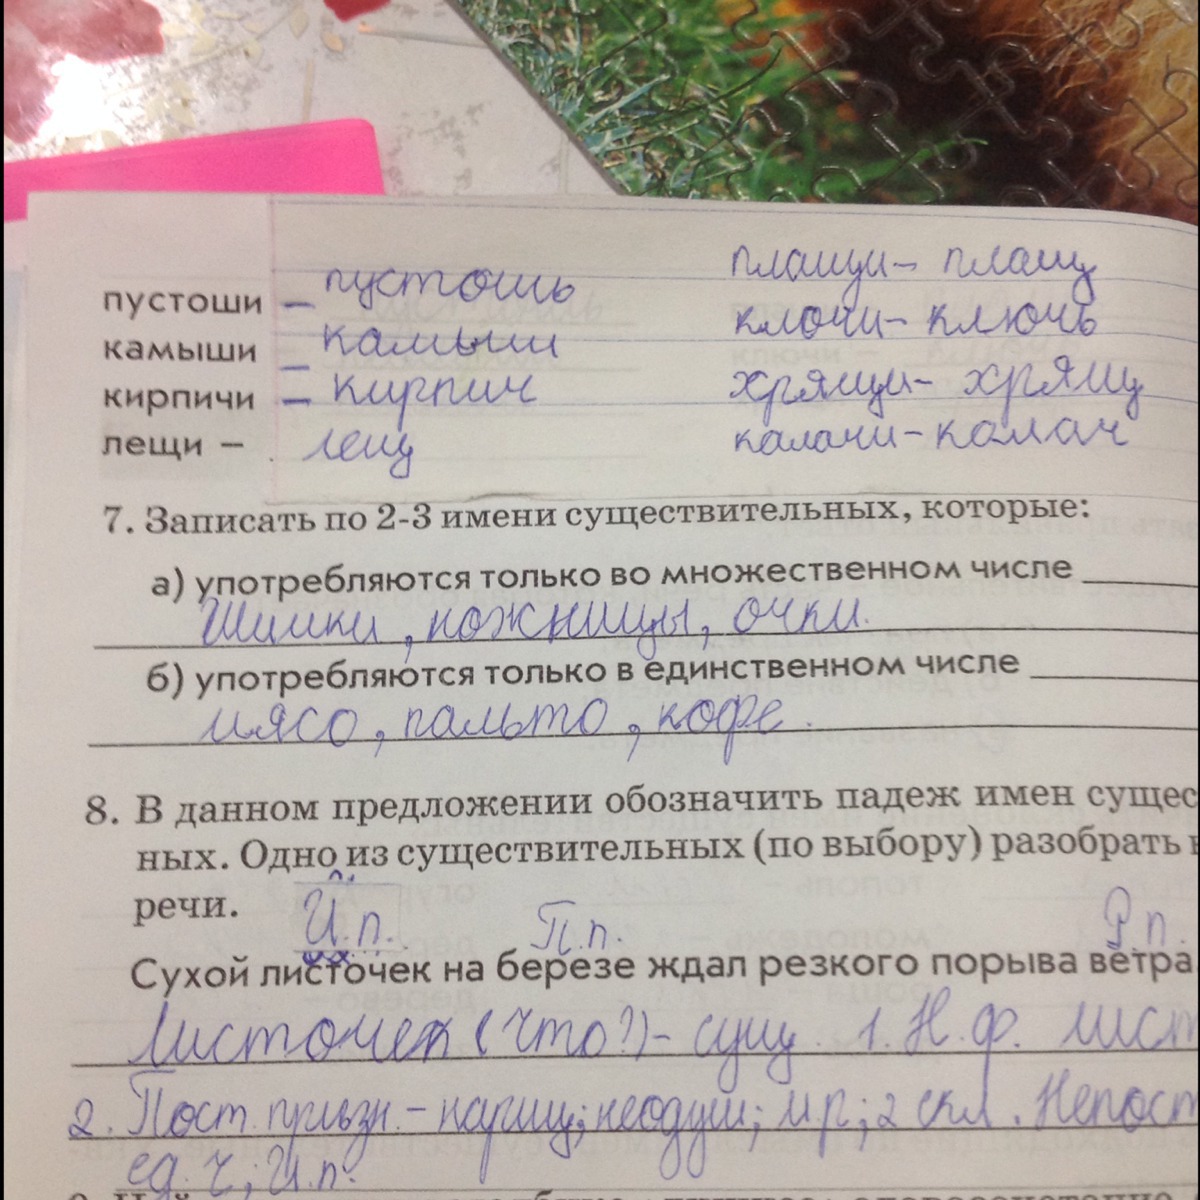 пустоши – пустошь
камыши – камыш
кирпичи – кирпич
лещи – лещ
плащи – плащ
клочи – ключь
хрящи – хрящ
калачи – калач
7. Записать по 2-3 имени существительных, которые:
а) употребляются только во множественном числе
Шишки, ножницы, очки.
б) употребляются только в единственном числе
мясо, пальто, кофе.
8. В данном предложении обозначить падеж имен сущес
ных. Одно из существительных (по выбору) разобрать к
речи.
И.п. П.п. Р.п.
Сухой листочек на березе ждал резкого порыва ветра
Листочек (что?) – сущ. 1. Н.ф. лист
2. Пост. призн. – нариц; неодуш; м.р; 2 скл. Непост
ед.ч; И.п.